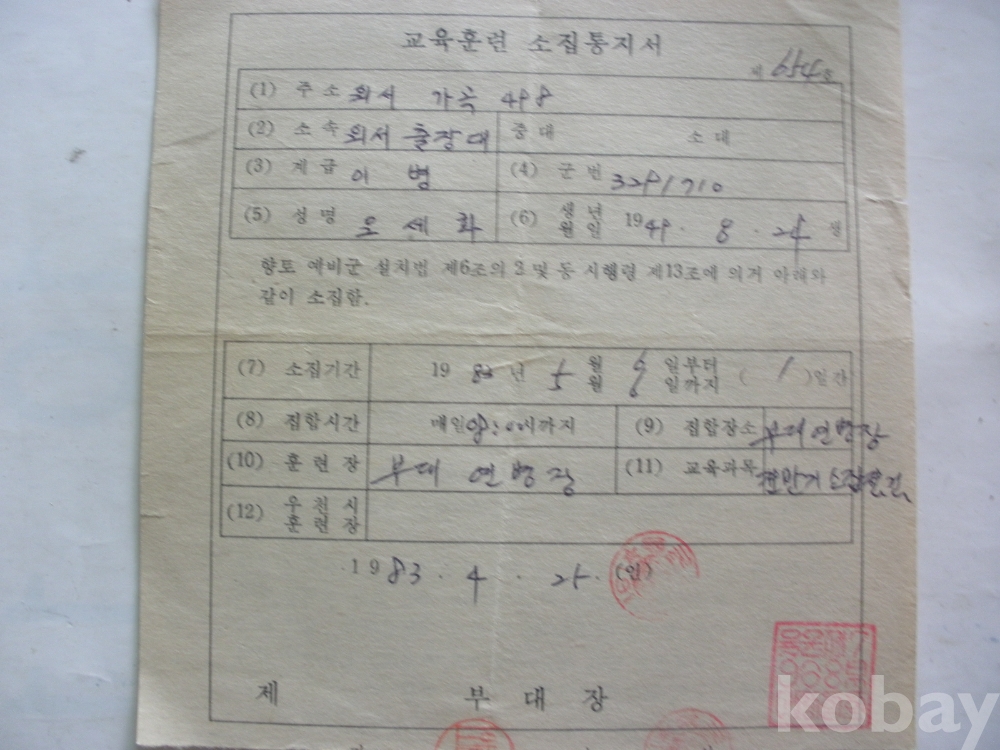 교육훈련 소집통지서
제 654호
(1) 주소 외서 가곡 498
(2) 소속 외서 출장대 중대 소대
(3) 계급 이 병 (4) 군번
(5) 성명 오세화 (6) 생년월일 1949. 8. 24 생
향토 예비군 설치법 제6조의 3 및 동 시행령 제13조에 의거 아래와
같이 소집함.
(7) 소집기간 1983년 5월 일부터 월 일까지 ( 1 )일간
(8) 집합시간 매일 09:00시까지 (9) 집합장소 부대연병장
(10) 훈련장 부대 연병장 (11) 교육과목
(12) 우천시 훈련장
1983. 4. 25. (인)
제 부 대 장
kobay